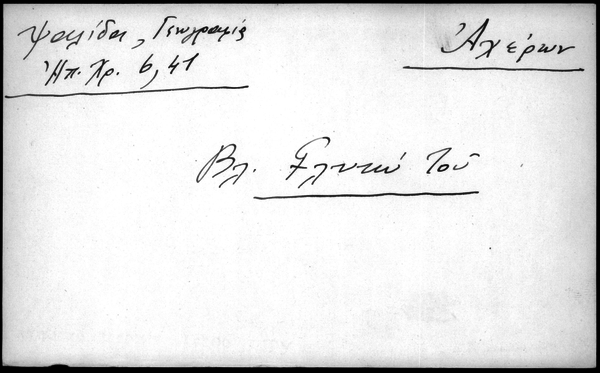 Ψαλίδα, Γεωγραφία
Ἠπ. Χρ. 6, 41
Ἀχέρων
Βλ. Γλυκύ Τοῦ